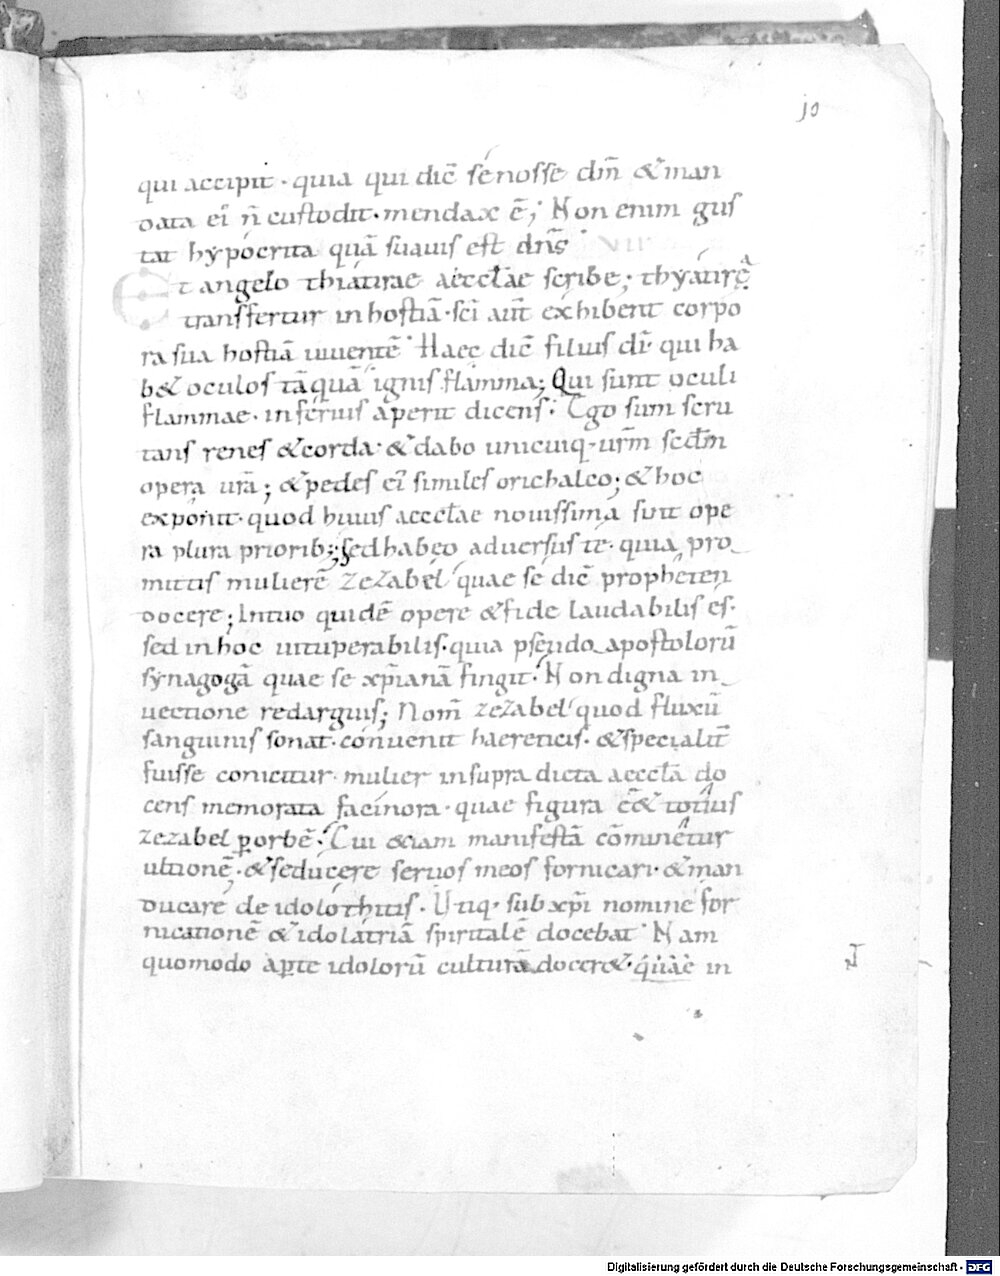 10
qui accipit · quia qui dic̄ se nosse dm̄ & man
data ei̅ n̄ custodit · mendax ē; Non enim gus
tat hypocrita quā suauis est dn̄s
Et angelo thiatirae aecclae scribe; thyatirę
transfertur in hostiā · sc̄i aut̄ exhibent corpo
ra sua hostiā uiuentē · Haec dic̄ filius dī · qui ha
b& oculos tāquā ignis flāmma; Qui sunt oculi
flammae · inferius aperit dicens · Ego sum scru
tans renes & corda · & dabo unicuiq· ur̄m scdm̄
opera ur̄a; & pedes ei̅ similes orichalco; & hoc
exponit · quod huius aecclae nouissima sunt ope
ra plura priorib;; sed habeo aduersus te · quia pro
mittis mulierē zezabel quae se dic̄ propheten
docere; In tuo quidē opere & fide laudabilis es ·
sed in hoc uituperabilis · quia pseudo apostolorū
synagogā quae se xp̄ianā fingit · Non digna in
uectione redarguis; Nom̄ zezabel quod fluxū
sanguinis sonat · conuenit haereticis · & specialit̄
fuisse conicitur · mulier in supra dicta aecclā do
cens memorata facinora · quae figura ē & totius
zezabel p̱ orbē · Cui &iam manifestā cōminētur
ultionē · & seducere seruos meos fornicari · & man
ducare de idolothitis · Utiq· sub xp̄i nomine for
nicationē & idolatriā spiritalē docebat · Nam
quomodo ap̱te idolorū culturā docer& · quae in
Digitalisierung gefördert durch die Deutsche Forschungsgemeinschaft - DFG